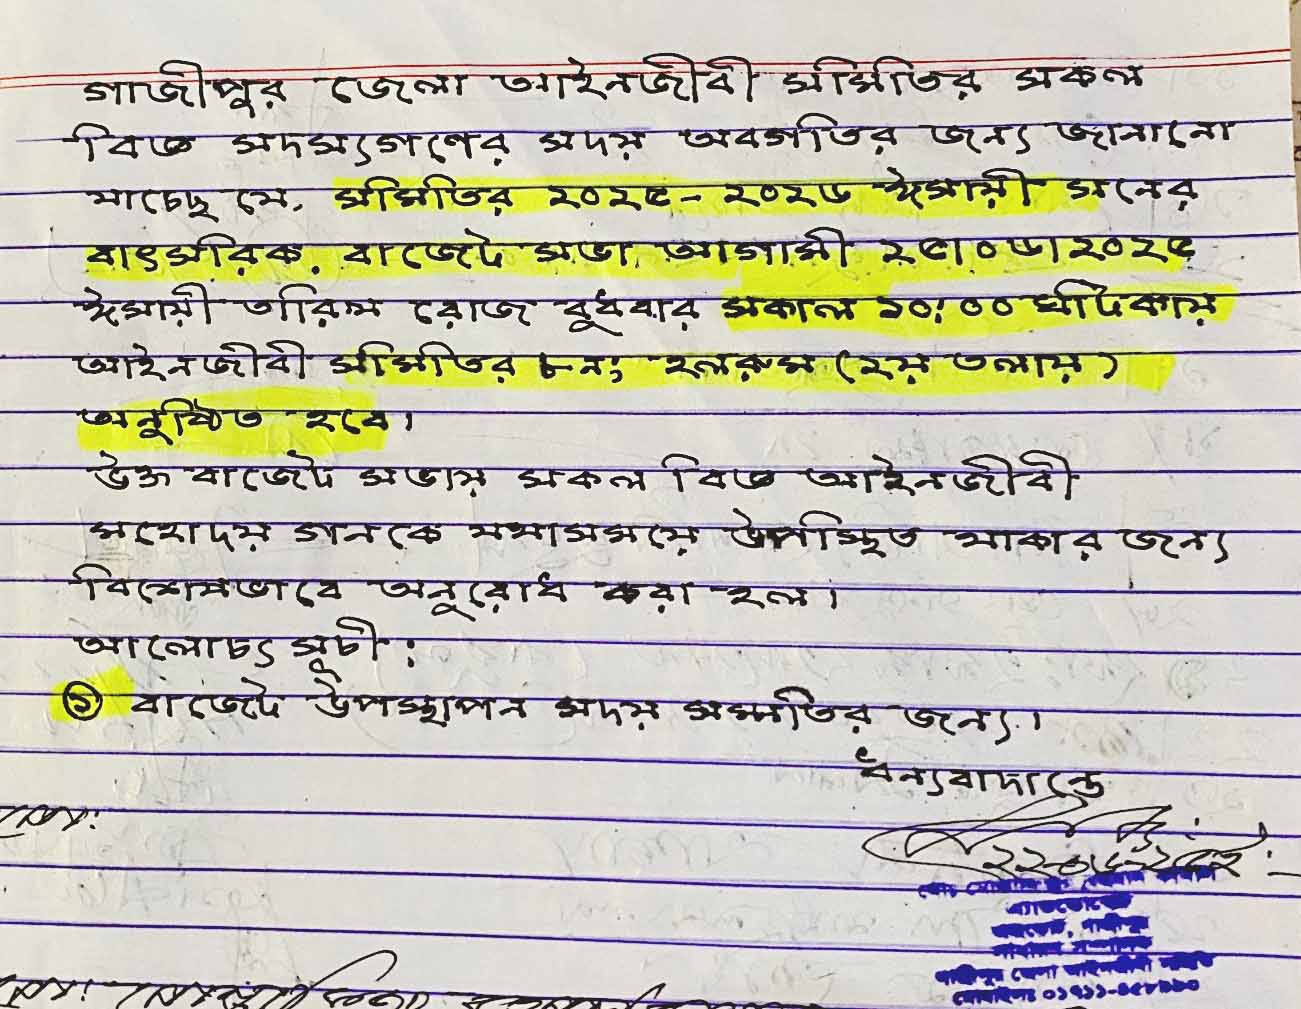 গাজীপুর জেলা আইনজীবী সমিতির সকল
বিজ্ঞ সদস্যগণের সদয় অবগতির জন্য জানানো
যাচ্ছে যে, সমিতির ২০২৫-২০২৬ ঈসায়ী সনের
বাৎসরিক বাজেট সভা আগামী ২৫।০৬।২০২৫
ঈসায়ী তারিখ রোজ বুধবার সকাল ১০:০০ ঘটিকায়
আইনজীবী সমিতির ৮নং হলরুম (২য় তলায়)
অনুষ্ঠিত হবে।
উক্ত বাজেট সভায় সকল বিজ্ঞ আইনজীবী
মহোদয় গনকে যথাসময়ে উপস্থিত থাকার জন্য
বিশেষভাবে অনুরোধ করা হল।
আলোচ্য সূচী:
১ বাজেট উপস্থাপন সদয় সম্মতির জন্য।
ধন্যবাদান্তে
এ্যাডভোকেট
গাজীপুর
সাধারণ সম্পাদক
গাজীপুর জেলা আইনজীবী সমিতি